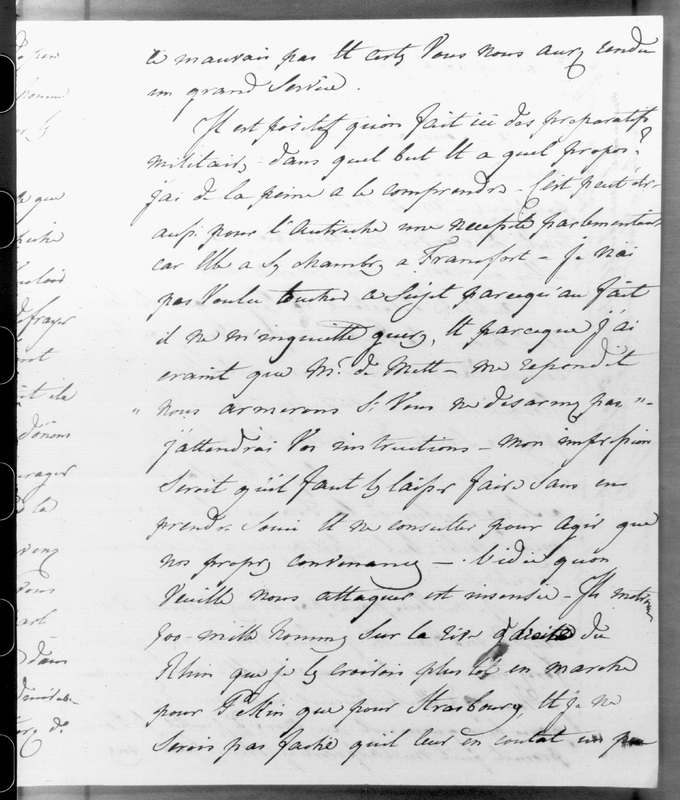 ce mauvais pas et certes vous nous aurez rendu
un grand service.
Il est positif qu'on fait ici des preparatifs
militaires - dans quel but et a quel propos?
j'ai de la peine a le comprendre - c'est peut etre
aussi pour l'Autriche une necessité parlementaire
car elle a ses chambres a Francfort - je n'ai
pas voulu toucher ce sujet parcequ'au fait
il ne m'inquiette guere, et parceque j'ai
craint que Mr. de Mett- me repondit
" nous armerons si vous ne desarmez pas " -
j'attendrai vos instructions - mon impression
seroit qu'il faut les laisser faire sans en
prendre souci et ne consulter pour agir que
nos propres convenances - l'idée qu'on
veuille nous attaquer est insensée - Ils
mille hommes sur la rive droite du
Rhin que je les croirois plustot en marche
pour Pekin que pour Strasbourg, et je ne
serois pas faché qu'il leur en coutat un peu
que
frayer
ort
urager
à la
venez
vous
dans
de